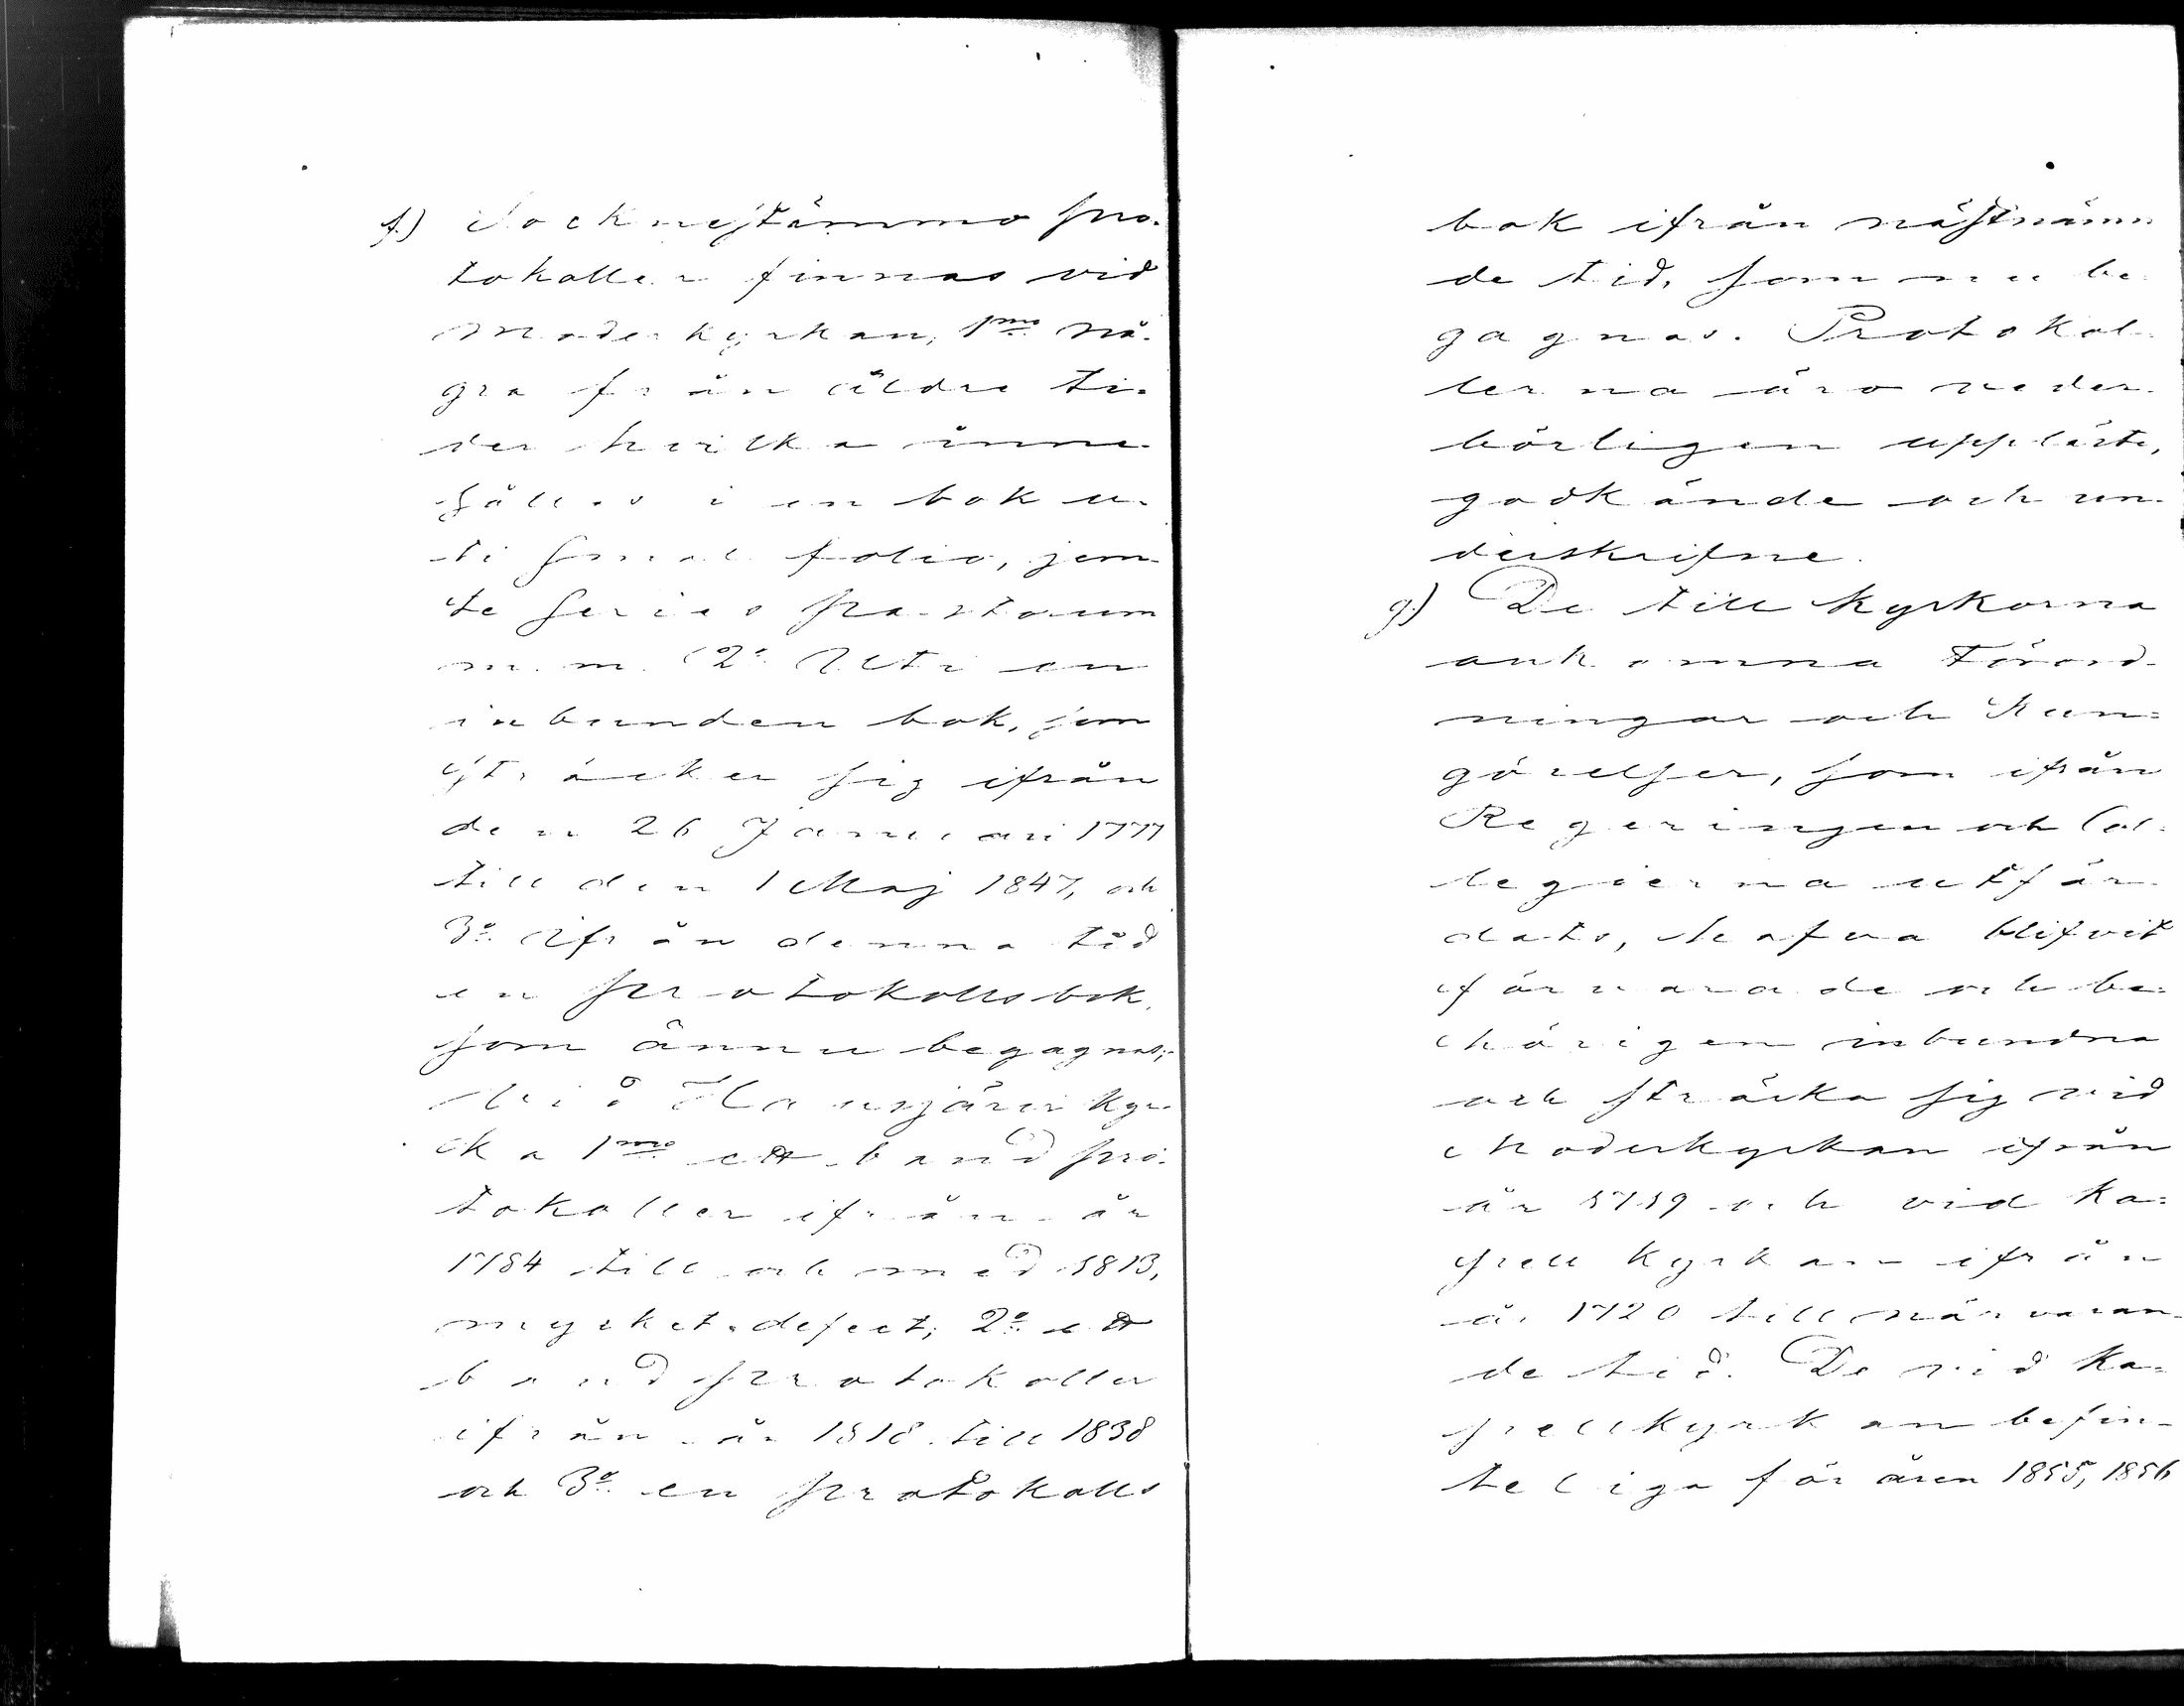 f.) Socknestämmo pro-
tokoller finnas vid
Moderkyrkan; 1mo Nå-
gra från äldre ti-
der hvilka inne-
hålles i en bok u-
ti smal folio, jem-
te Series pastorum
m. m. 2o Uti en
inbunden bok, som
sträcker sig ifrån
den 26 Januari 1777
till den 1 Maj 1847, och
3o Ifrån denna tid
en protokollsbok,
som ännu begagnas;
Vid Hausjärvi Kyr-
ka 1mo ett band pro-
tokoller ifrån år
1754 till och med 1813,
mycket defect; 2o ett
band protokoller
ifrån år 1818 till 1838
och 3o en protokolls
bok ifrån nästnämn
de tid, som nu be-
gagnas. Protokol-
lerna äro veder-
börligen uppläste,
godkände och un-
derskrifne.
g.) De till Kyrkorna
ankomna Förord-
ningar och Kun=
görelser, som ifrån
Regeringen och Col-
legierna utfär-
dats, hafva blifvit
förvarade och be=
hörigen inbundna
och sträcka sig vid
Moderkyrkan ifrån
år och vid Ka=
pell Kyrkan ifrån
år 1720 till närvaran-
de tid. De vid Ka=
pellkyrkan befin-
teliga för åren 1855, 1856